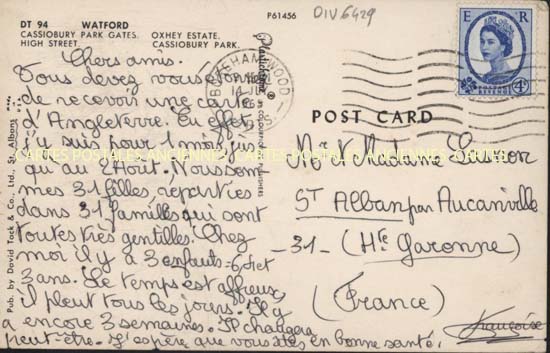 DT 94 WATFORD
CASSIOBURY PARK GATES. OXHEY ESTATE.
HIGH STREET. CASSIOBURY PARK.
P61456
DIV6429
Chers amis.
Vous devez vous étonner
de recevoir une carte
d'Angleterre. En effet,
j'y suis pour 1 mois jus
qu'au 2 Août. Nous som
mes 31 filles réparties
dans 31 familles qui sont
toutes très gentilles. Chez
moi il y a 3 enfants - 6, et
3 ans. Le temps est affreux,
il pleut tous les jours. Il y
a encore 3 semaines. Il changera
peut-être. J'espère que vous êtes en bonne santé.
Françoise
POST CARD
Mr et Madame
ST Alban par Aucamville
-31- (Hte Garonne)
(France)
E R
4D
BOREHAMWOOD
Plastichrome ®
Pub. by David Tock & Co., Ltd., St. Albans
CARTES POSTALES ANCIENNES CARTES POSTALES ANCIENNES CARTES